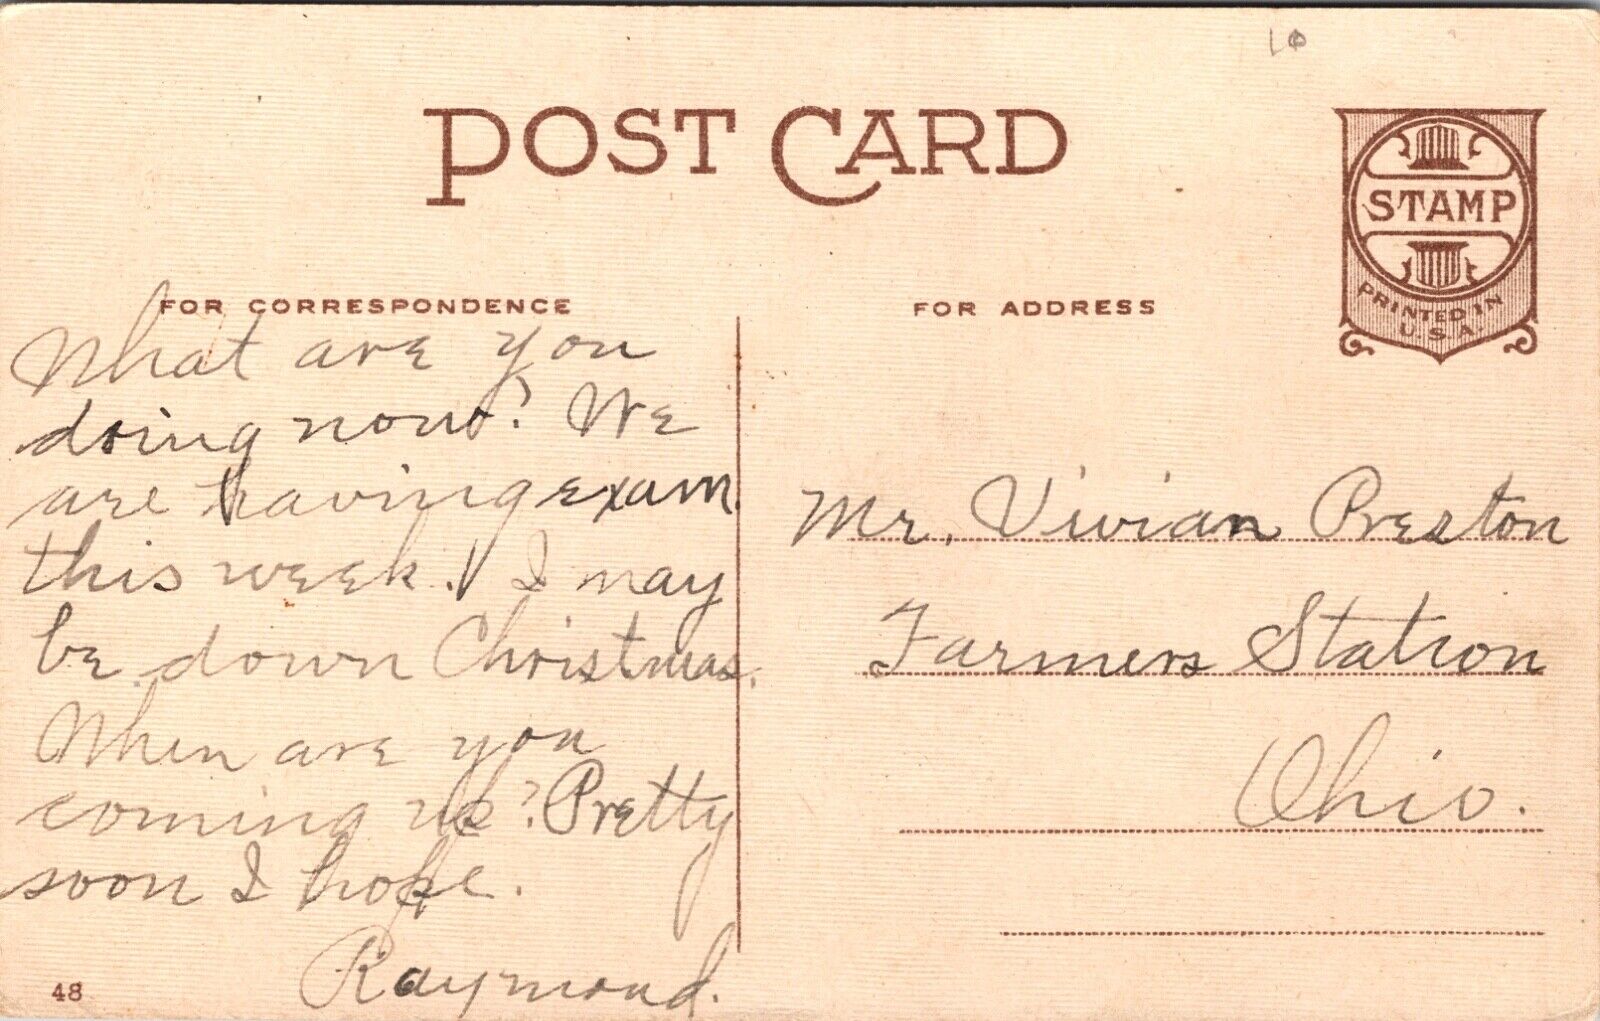 10
POST CARD
STAMP
PRINTED IN
U.S.A.
FOR CORRESPONDENCE
What are you
doing now? We
are having exam.
this week. I may
be down Christmas.
When are you
coming up? Pretty
soon I hope.
Raymond.
48
FOR ADDRESS
Mr. Vivian Preston
Farmers Station
Ohio.